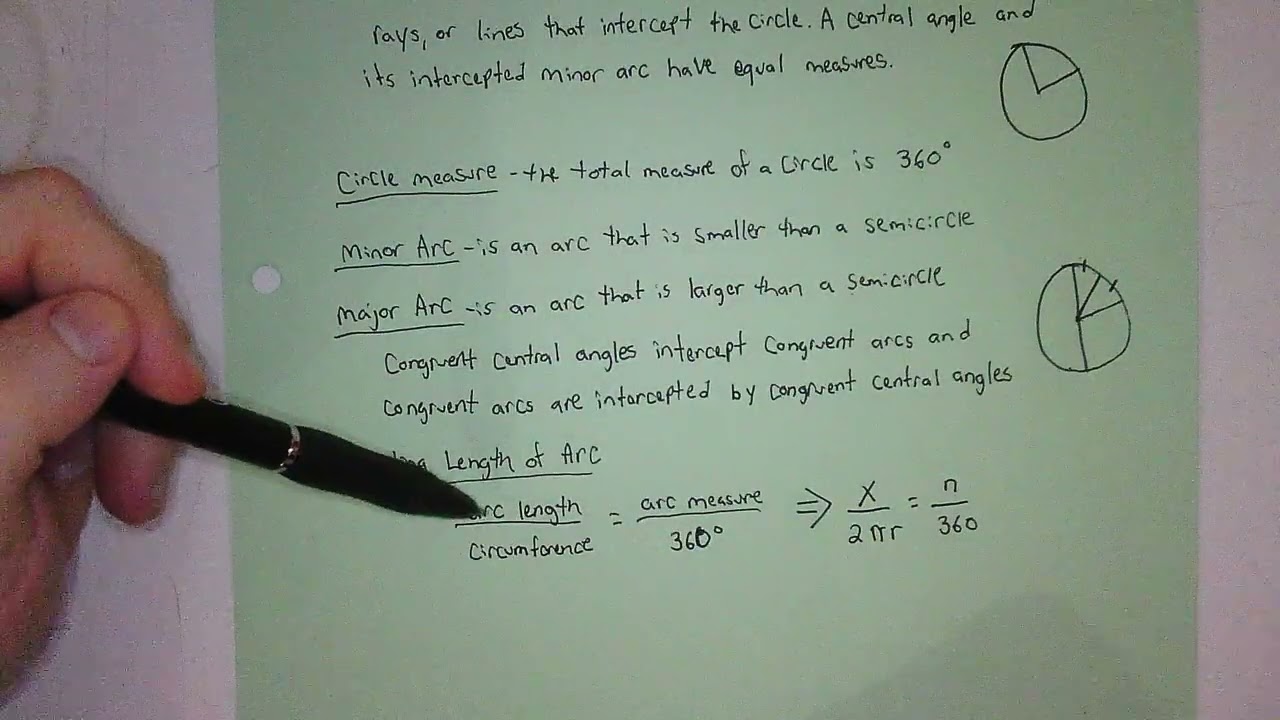 rays, or lines that intercept the circle. A central angle and
its intercepted minor arc have equal measures.
Circle measure - the total measure of a circle is 360°
Minor Arc - is an arc that is smaller than a semicircle
Major Arc - is an arc that is larger than a semicircle
Congruent central angles intercept congruent arcs and
congruent arcs are intercepted by congruent central angles
Length of Arc
arc length / Circumference = arc measure / 360° ⇒ X / 2πr = n / 360